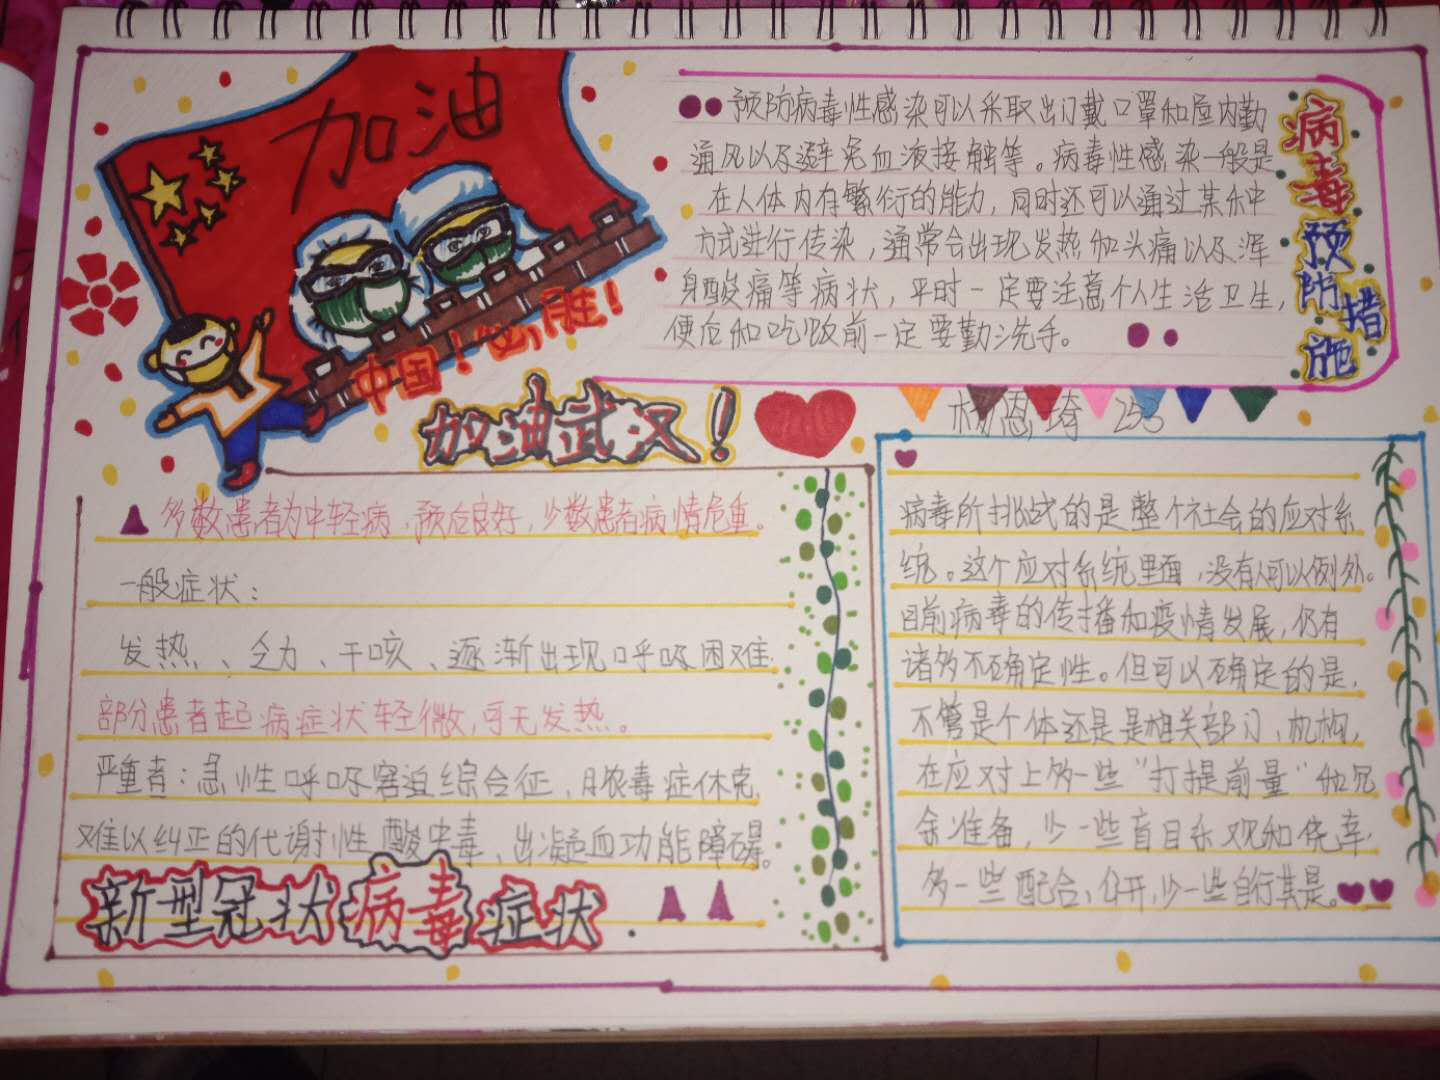 加油
中国！必胜！
加油武汉！
病毒预防措施
预防病毒性感染可以采取出门戴口罩和屋内勤
通风以及避免血液接触等。病毒性感染一般是
在人体内有繁衍的能力，同时还可以通过某种
方式进行传染，通常会出现发热和头痛以及浑
身酸痛等病状，平时一定要注意个人生活卫生，
便后和吃饭前一定要勤洗手。
杨恩琦 253
多数患者为中轻病，预后良好，少数患者病情危重。
一般症状：
发热、乏力、干咳、逐渐出现呼吸困难
部分患者起病症状轻微，可无发热。
严重者：急性呼吸窘迫综合征，脓毒症休克，
难以纠正的代谢性酸中毒，出凝血功能障碍。
新型冠状病毒症状
病毒所挑战的是整个社会的应对系
统。这个应对系统里面，没有人可以例外。
目前病毒的传播和疫情发展，仍有
诸多不确定性。但可以确定的是，
不管是个体还是是相关部门、机构，
在应对上多一些“打提前量”和冗
余准备，少一些盲目乐观和侥幸，
多一些配合，公开，少一些自行其是。